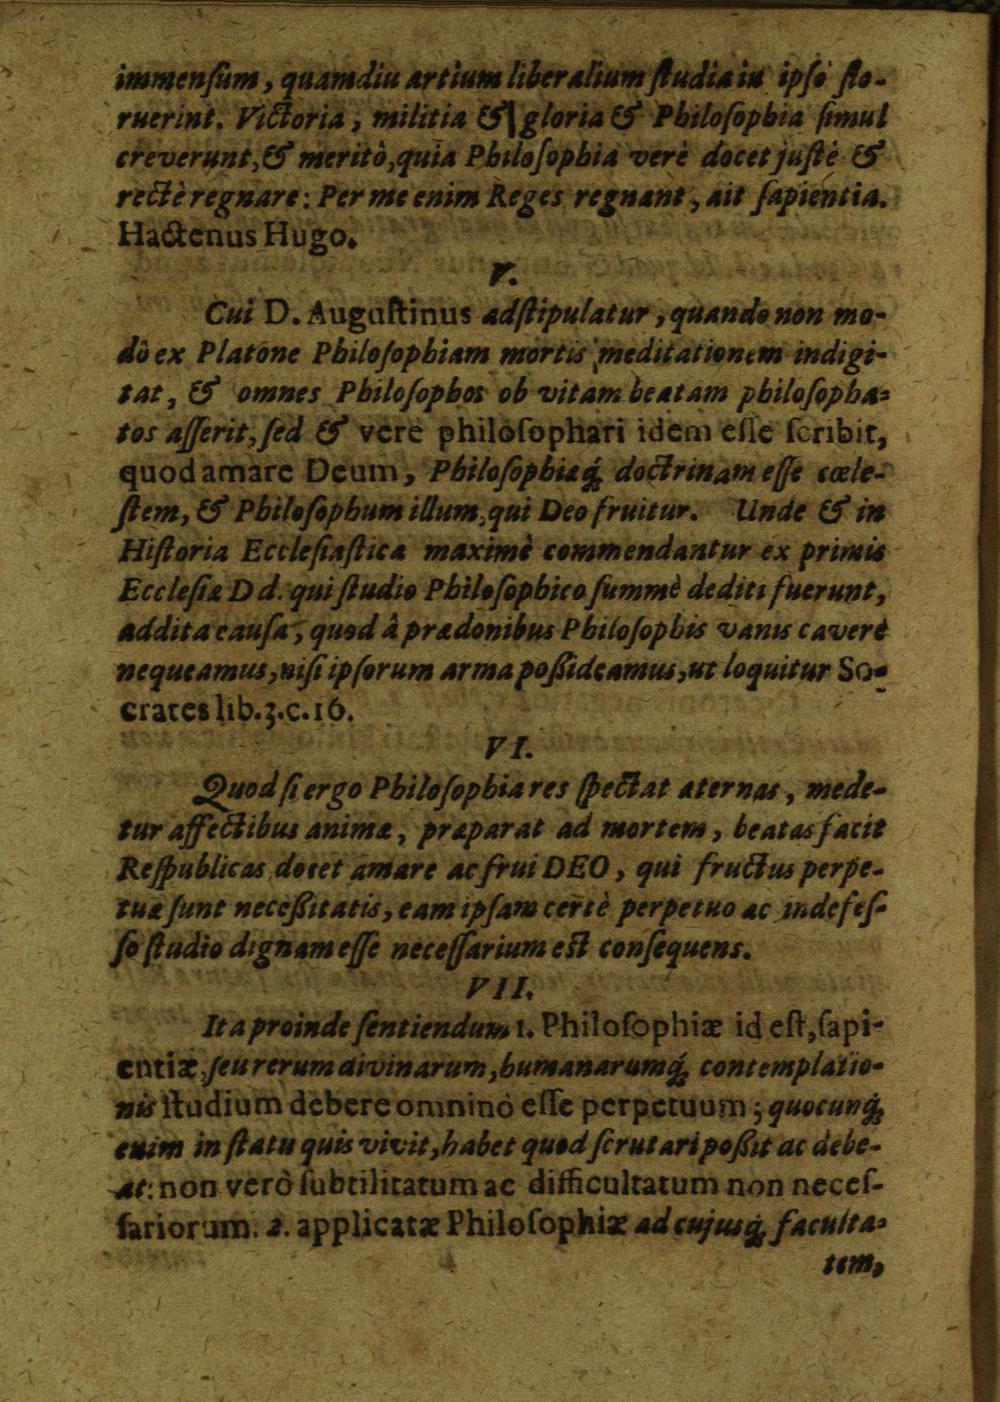 immenſum, quamdiu artium liberalium ſtudia in ipſo flo-
ruerint. Victoria, militia & gloria & Philoſophia ſimul
creverunt, & meritò, quia Philoſophia verè docet juſtè &
rectè regnare: Per me enim Reges regnant, ait ſapientia.
Hactenus Hugo.
V.
Cui D. Auguſtinus adſtipulatur, quando non mo-
dò ex Platone Philoſophiam mortis meditationem indigi-
tat, & omnes Philoſophos ob vitam beatam philoſopha-
tos aſſerit, ſed & vere philoſophari idem eſſe ſcribit,
quod amare Deum, Philoſophiaq́; doctrinam eſſe cœle-
ſtem, & Philoſophum illum, qui Deo fruitur. Unde & in
Hiſtoria Eccleſiaſtica maximè commendantur ex primis
Eccleſiæ D d. qui ſtudio Philoſophico ſummè dediti fuerunt,
addita cauſa, quod â prædonibus Philoſophis vanis cavere
nequeamus, niſi ipſorum arma poßideamus, ut loquitur So-
crates lib. 3. c. 16.
VI.
Quod ſi ergo Philoſophia res ſpectat aternas, mede-
tur affectibus animæ, præparat ad mortem, beatas facit
Reſpublicas docet amare ac frui DEO, qui fructus perpe-
tuæ ſunt neceßitatis, eam ipſam certè perpetuo ac indefeſ-
ſo ſtudio dignam eſſe neceſſarium eſt conſequens.
VII.
Ita proinde ſentiendum 1. Philoſophiæ id eſt, ſapi-
entiæ, ſeu rerum divinarum, humanarumq́; contemplatio-
nis ſtudium debere omninò eſſe perpetuum; quocunq́;
enim in ſtatu quis vivit, habet quod ſcrutari poßit ac debe-
at: non verò ſubtilitatum ac difficultatum non neceſ-
ſariorum. 2. applicatæ Philoſophiæ ad cujusq́; faculta-
tem,